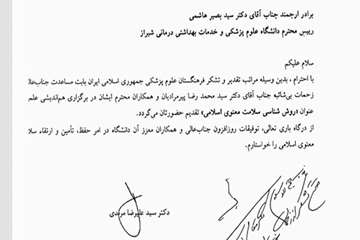 برادر ارجمند جناب آقای دکتر سید بصیر هاشمی
رییس محترم دانشگاه علوم پزشکی و خدمات بهداشتی درمانی شیراز
سلام علیکم
با احترام ، بدین وسیله مراتب تقدیر و تشکر فرهنگستان علوم پزشکی جمهوری اسلامی ایران بابت مساعدت جناب‌عالی
زحمات بی‌شائبه جناب آقای دکتر سید محمد رضا پیرمرادیان و همکاران محترم ایشان در برگزاری هم‌اندیشی علم
عنوان «روش شناسی سلامت معنوی اسلامی» تقدیم حضورتان می‌گردد.
از درگاه باری تعالی، توفیقات روزافزون جناب‌عالی و همکاران معزز آن دانشگاه در امر حفظ، تأمین و ارتقاء سلا
معنوی اسلامی را خواستارم.
دکتر سید علیرضا مرندی